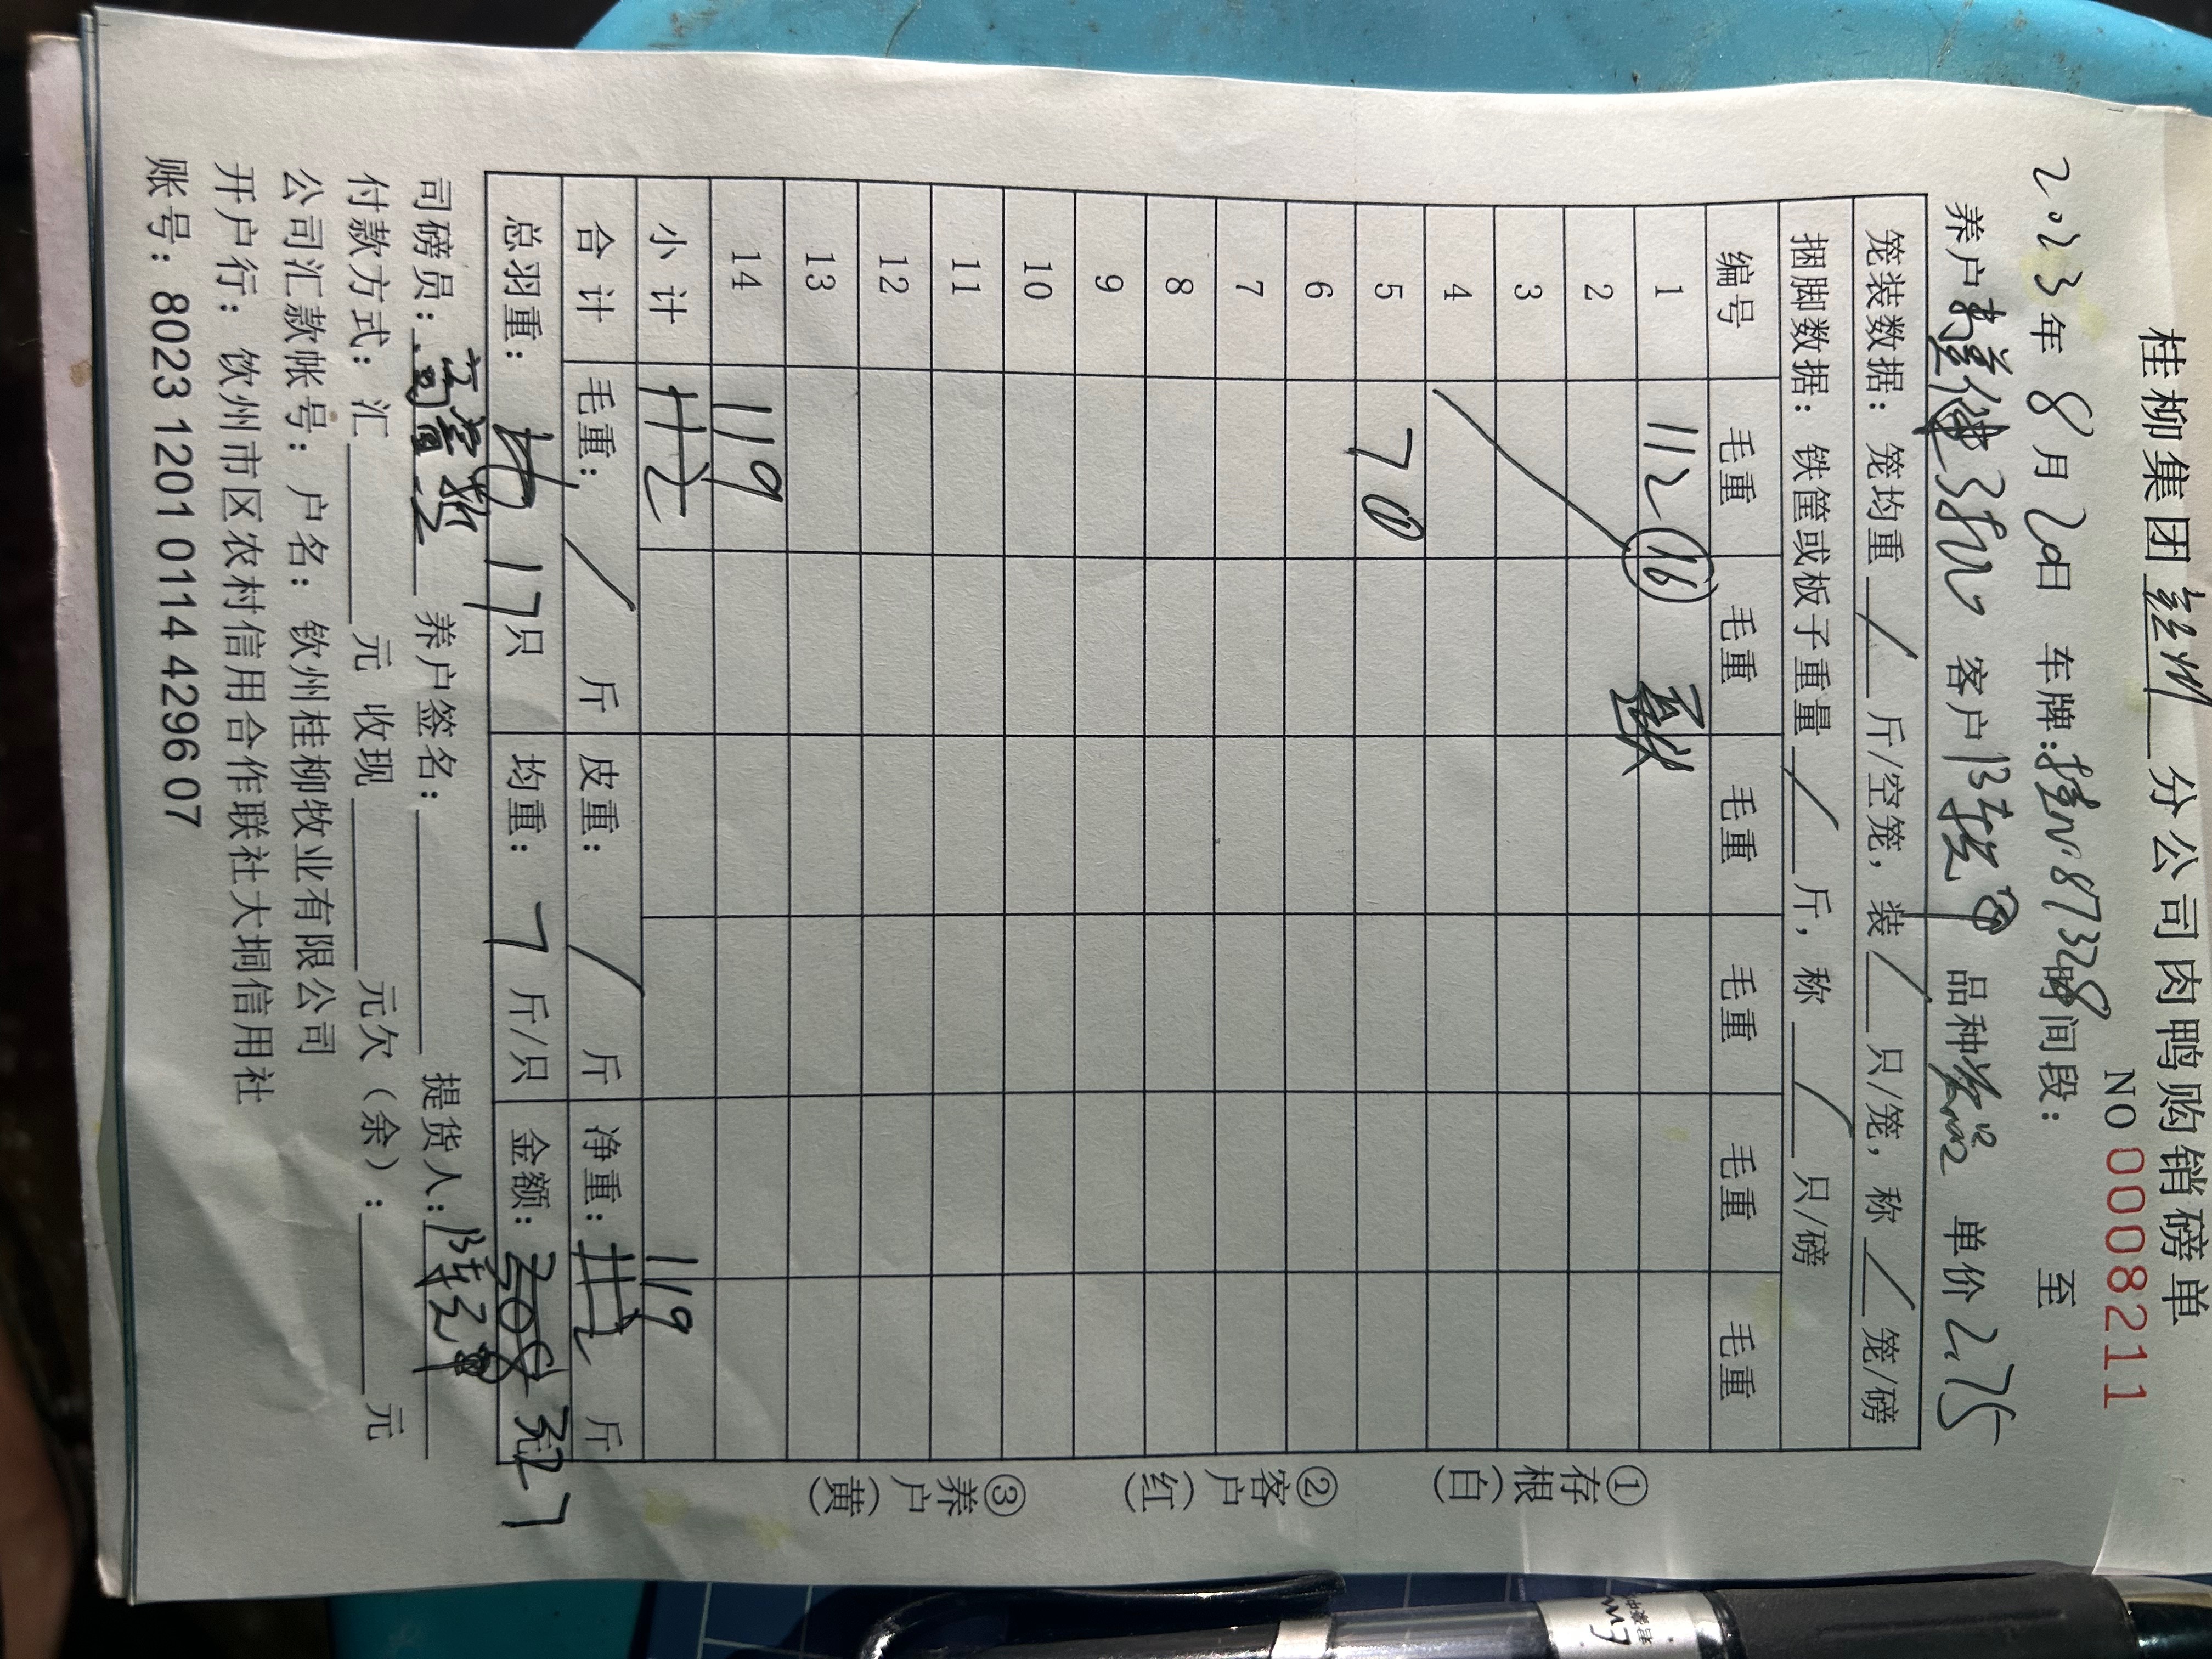 桂柳集团 分公司肉鸭购销磅单
NO 0008211
2023年 8月 20日 车牌:桂N·87328 时间段: 至
养户 客户 品种 单价 2.75
笼装数据: 笼均重 / 斤/空笼, 装 / 只/笼, 称 / 笼/磅
捆脚数据: 铁筐或板子重量 / 斤, 称 / 只/磅
编号 毛重 毛重 毛重 毛重 毛重 毛重
1 112 (16)
2
3
4
5 70
6
7
8
9
10
11
12
13
14 119
小计 119
合计 毛重: / 斤 皮重: / 斤 净重: 斤
总羽重: 17只 均重: 7 斤/只 金额: 327
司磅员: 养户签名: 提货人:
付款方式: 汇 元 收现 元欠(余): 元
公司汇款帐号: 户名: 钦州桂柳牧业有限公司
开户行: 钦州市区农村信用合作联社大垌信用社
账号: 8023 1201 0114 4296 07
①存根(白) ②客户(红) ③养户(黄)